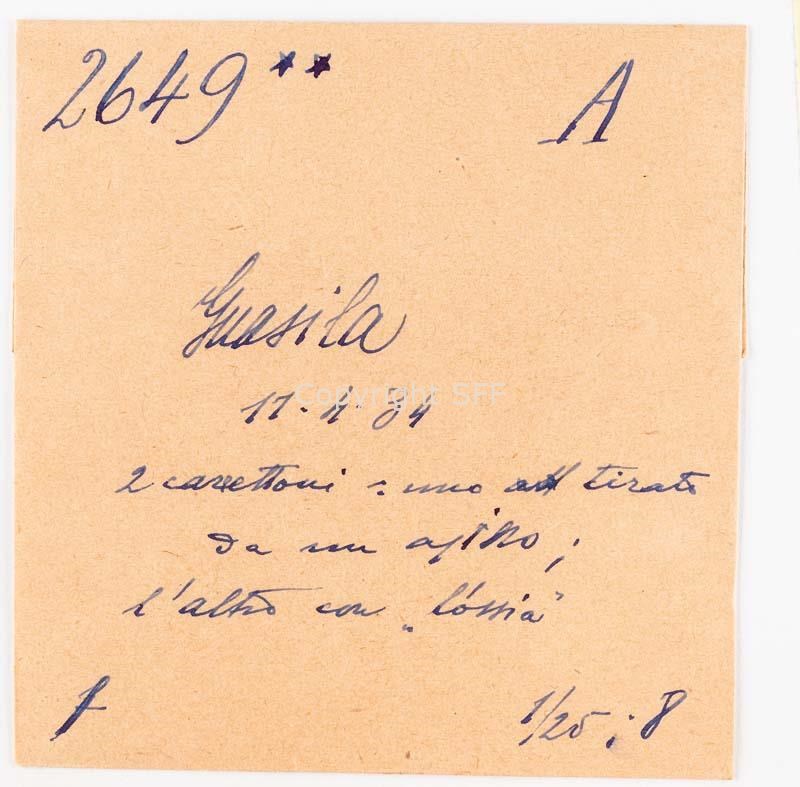 2649 ** A
Guasila
Copyright SFF
11 - 4 - 34
2 carrettoni : uno tirato
da un asino ;
l'altro con „lóssia"
f
1/25 ; 8